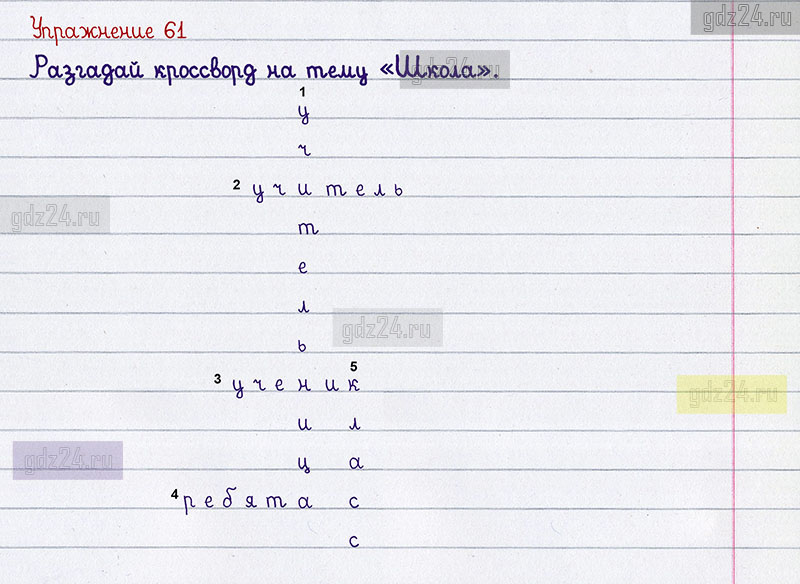 gdz24.ru
Упражнение 61
Разгадай кроссворд на тему «Школа».
gdz24.ru
1
у
ч
2 учитель
gdz24.ru
т
е
л
gdz24.ru
ь
5
3 ученик
gdz24.ru
и л
ц а
gdz24.ru
4 ребята с
с